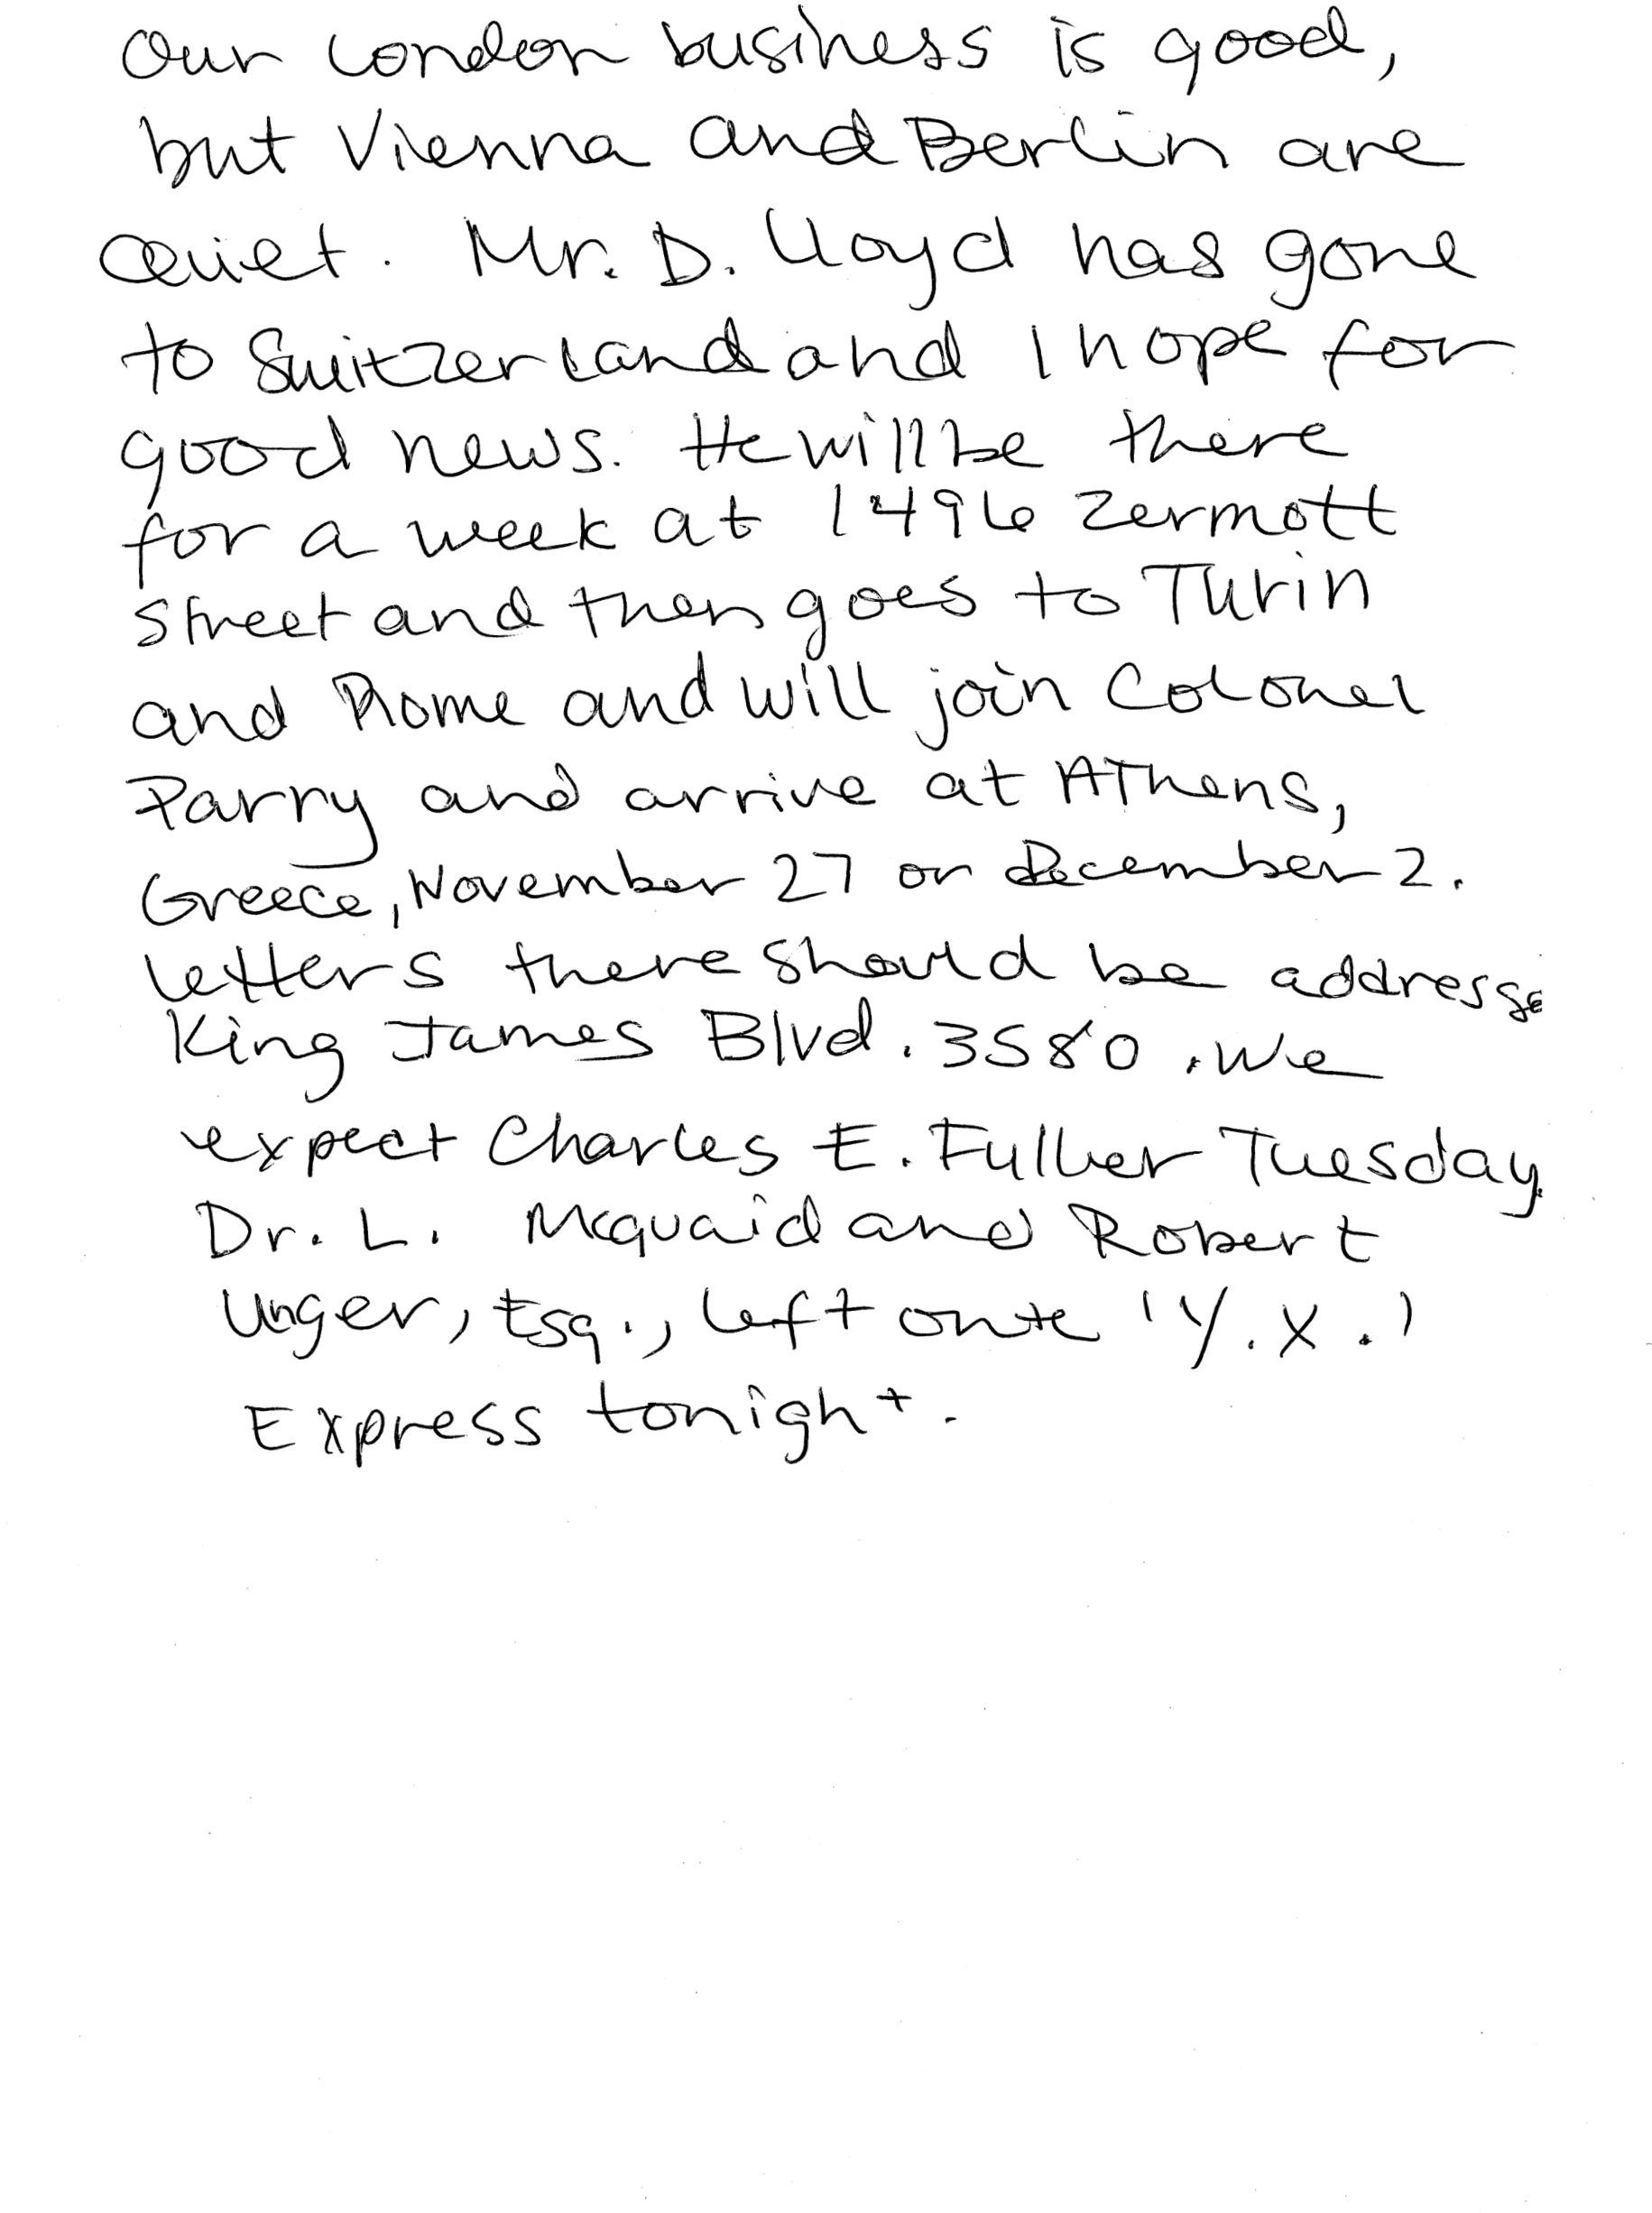 Our London business is good,
but Vienna and Berlin are
quiet. Mr. D. Lloyd has gone
to Switzerland and I hope for
good news. He will be there
for a week at 1496 Zermott
street and then goes to Turin
and Rome and will join Colonel
Parry and arrive at Athens,
Greece, November 27 or December 2.
Letters there should be addresse
King James Blvd. 3580. We
expect Charles E. Fuller Tuesday.
Dr. L. McQuaid and Robert
Unger, Esq., left on the 'Y.X.'
Express tonight.